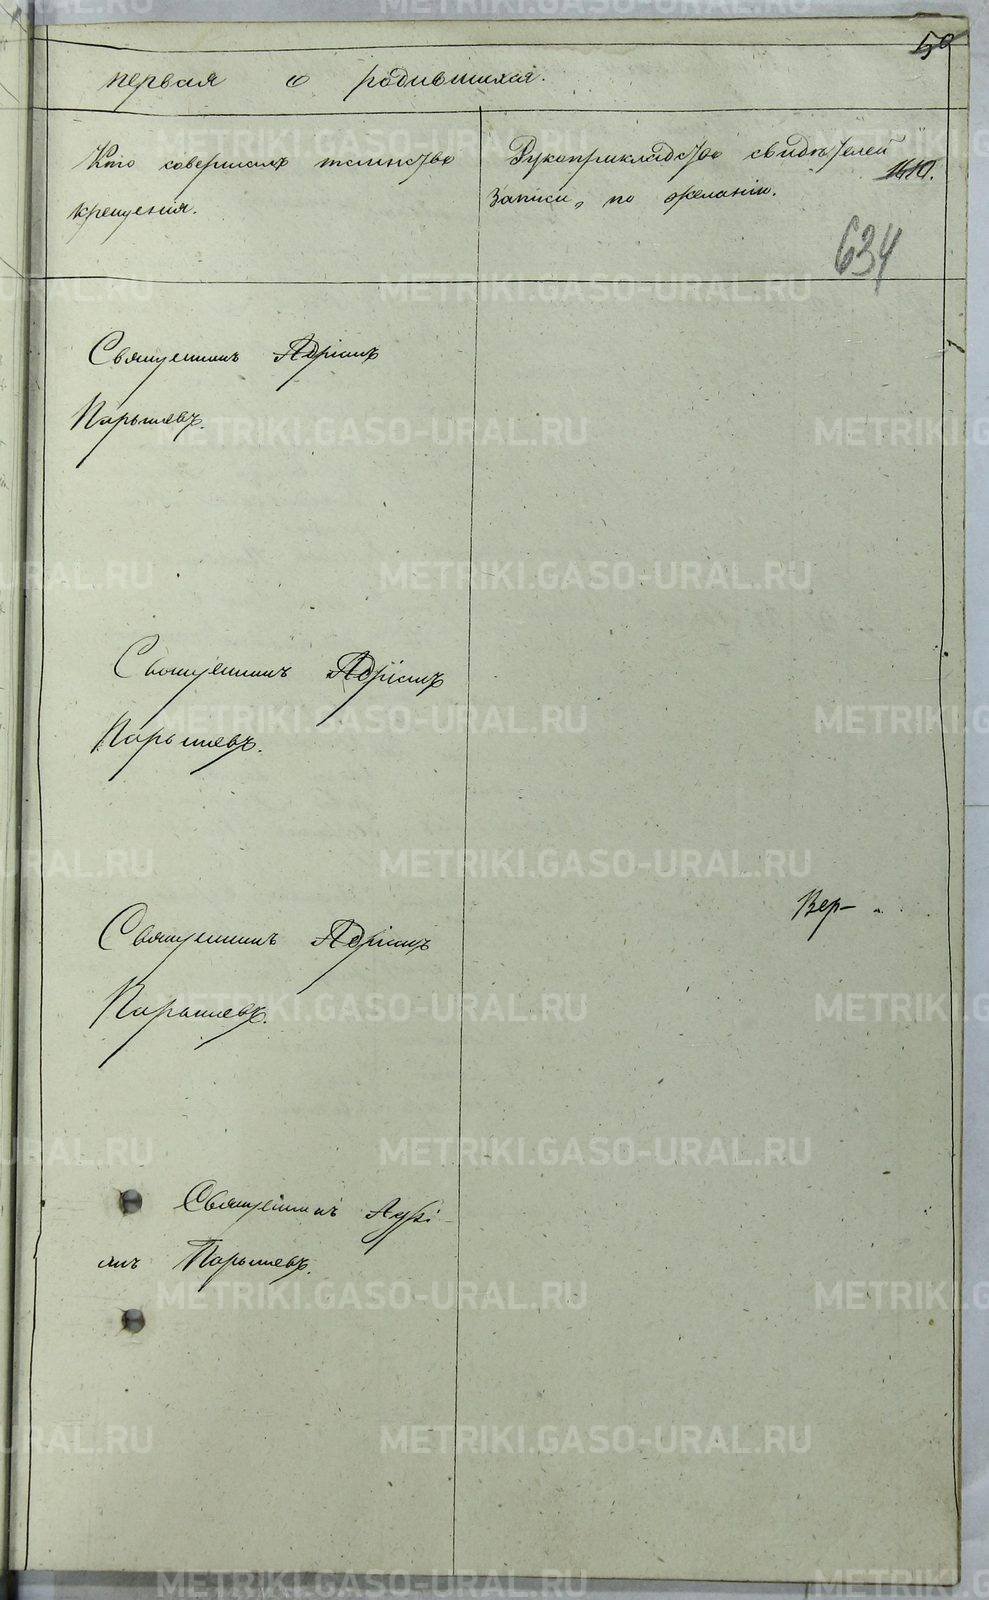 50
первая о родившихся.
Кто совершалъ таинство
крещенія.
Рукоприкладство свидѣтелей
записи, по желанію.
1610.
634
Священникъ Адріанъ
Парышевъ.
Священникъ Адріанъ
Парышевъ.
Вер-
Священникъ Адріанъ
Парышевъ.
Священникъ Адрі-
анъ Парышевъ.
METRIKI.GASO-URAL.RU